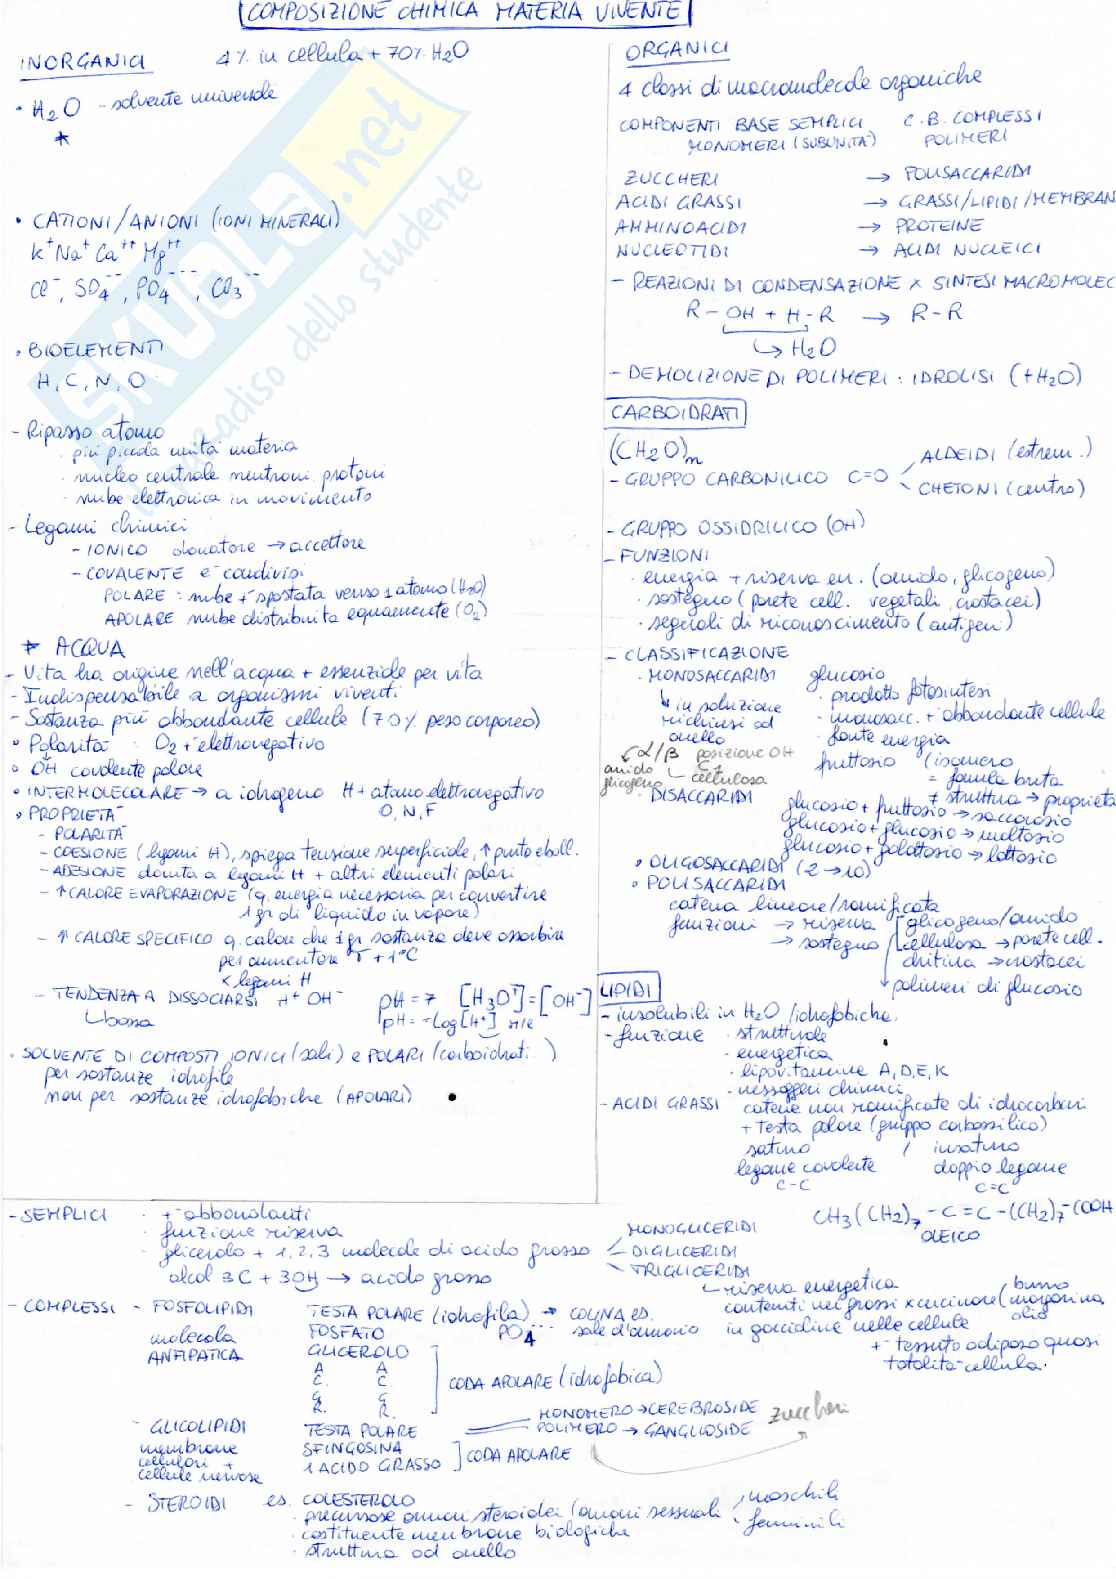 COMPOSIZIONE CHIMICA MATERIA VIVENTE
INORGANICI 4% in cellula + 70% H2O
• H2O - solvente universale
*
• CATIONI/ANIONI (IONI MINERALI)
K+ Na+ Ca++ Mg++
Cl-, SO4--, PO4---, CO3--
• BIOELEMENTI
H, C, N, O
- Ripasso atomo
· più piccola unità materia
· nucleo centrale neutroni protoni
· nube elettronica in movimento
- Legami chimici
- IONICO donatore → accettore
- COVALENTE e- condivisi
POLARE : nube + spostata verso 1 atomo (H2O)
APOLARE nube distribuita equamente (O2)
* ACQUA
- Vita ha origine nell'acqua + essenziale per vita
- Indispensabile a organismi viventi
- Sostanza più abbondante cellule (70% peso corporeo)
• Polarità : O2 + elettronegativo
• OH covalente polare
• INTERMOLECOLARE → a idrogeno H + atomo elettronegativo
O, N, F
• PROPRIETÀ
- POLARITÀ
- COESIONE (legami H), spiega tensione superficiale, ↑ punto eboll.
- ADESIONE dovuta a legami H + altri elementi polari
- ↑ CALORE EVAPORAZIONE (q. energia necessaria per convertire
1 gr di liquido in vapore)
- ↑ CALORE SPECIFICO q. calore che 1 gr sostanza deve assorbire
per aumentare T + 1°C
< legami H
- TENDENZA A DISSOCIARSI H+ OH- pH = 7 [H3O+] = [OH-]
bassa pH = -log[H+]
• SOLVENTE DI COMPOSTI IONICI (sali) e POLARI (carboidrati...)
per sostanze idrofile
non per sostanze idrofobiche (APOLARI)
ORGANICI
4 classi di macromolecole organiche
COMPONENTI BASE SEMPLICI C.B. COMPLESSI
MONOMERI (SUBUNITÀ) POLIMERI
ZUCCHERI → POLISACCARIDI
ACIDI GRASSI → GRASSI/LIPIDI/MEMBRAN
AMMINOACIDI → PROTEINE
NUCLEOTIDI → ACIDI NUCLEICI
- REAZIONI DI CONDENSAZIONE x SINTESI MACROMOLEC
R - OH + H - R → R - R
↳ H2O
- DEMOLIZIONE DI POLIMERI : IDROLISI (+H2O)
CARBOIDRATI
(CH2O)n
- GRUPPO CARBONILICO C=O < ALDEIDI (estrem.)
CHETONI (centro)
- GRUPPO OSSIDRILICO (OH)
- FUNZIONI
· energia + riserva en. (amido, glicogeno)
· sostegno (parete cell. vegetali, crostacei)
· segnali di riconoscimento (antigeni)
- CLASSIFICAZIONE
· MONOSACCARIDI glucosio
↳ in soluzione · prodotto fotosintesi
richiusi ad · monosacc. + abbondante cellule
anello · fonte energia
α/β posizione OH C1 fruttosio (isomero
amido cellulosa = formula bruta
glicogeno ≠ struttura → proprietà
· DISACCARIDI glucosio + fruttosio → saccarosio
glucosio + glucosio → maltosio
glucosio + galattosio → lattosio
• OLIGOSACCARIDI (2→10)
• POLISACCARIDI
catena lineare/ramificata
funzioni → riserva glicogeno/amido
→ sostegno cellulosa → parete cell.
chitina → crostacei
polimeri di glucosio
LIPIDI
- insolubili in H2O / idrofobiche
- funzione · strutturale
· energetica
· lipov. tamine A, D, E, K
· messaggeri chimici
- ACIDI GRASSI catene non ramificate di idrocarburi
+ testa polare (gruppo carbossilico)
saturo / insaturo
legame covalente doppio legame
C-C C=C
CH3(CH2)7 - C = C - (CH2)7 - COOH
OLEICO
- SEMPLICI · + abbondanti
· funzione riserva
· glicerolo + 1, 2, 3 molecole di acido grasso MONOGLICERIDI
DIGLICERIDI
TRIGLICERIDI
alcol 3C + 3OH → acido grasso
riserva energetica
contenuti nei grassi x cucinare (burro margarina olio
in goccioline nelle cellule
+ tessuto adiposo quasi
totalità cellula.
- COMPLESSI - FOSFOLIPIDI TESTA POLARE (idrofila) → COLINA es.
molecola FOSFATO PO4--- sale d'amonio
ANFIPATICA GLICEROLO
A A
C. C.
G G
R. R.
CODA APOLARE (idrofobica)
- GLICOLIPIDI TESTA POLARE MONOMERO → CEREBROSIDE zuccheri
POLIMERO → GANGLIOSIDE
membrane SFINGOSINA
cellulari + 1 ACIDO GRASSO CODA APOLARE
cellule nervose
- STEROIDI es. COLESTEROLO
· precursore ormoni steroidei (ormoni sessuali maschili
femminili
· costituente membrane biologiche
· struttura ad anello
SKUOLA.net
il paradiso dello studente